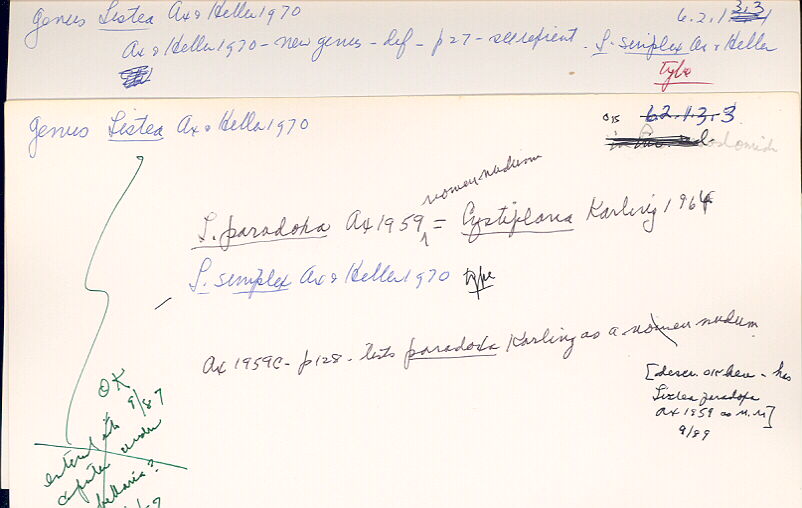 Genus Listea Ax & Heller 1970
6.2.1
Ax & Heller 1970 - new genus - def - p27 - L. simplex Ax & Heller
type
Genus Listea Ax & Heller 1970
6.2.1.3.3
nomen nudum
L. paradoxa Ax 1959 = Cystiplana Karling 1964
L. simplex Ax & Heller 1970 type
Ax 1959c - p128 - lists paradoxa Karling as a nomen nudum
Listea paradoxa
Ax 1959 as n.n]
9/89
OK
9/87
entered into
computer under